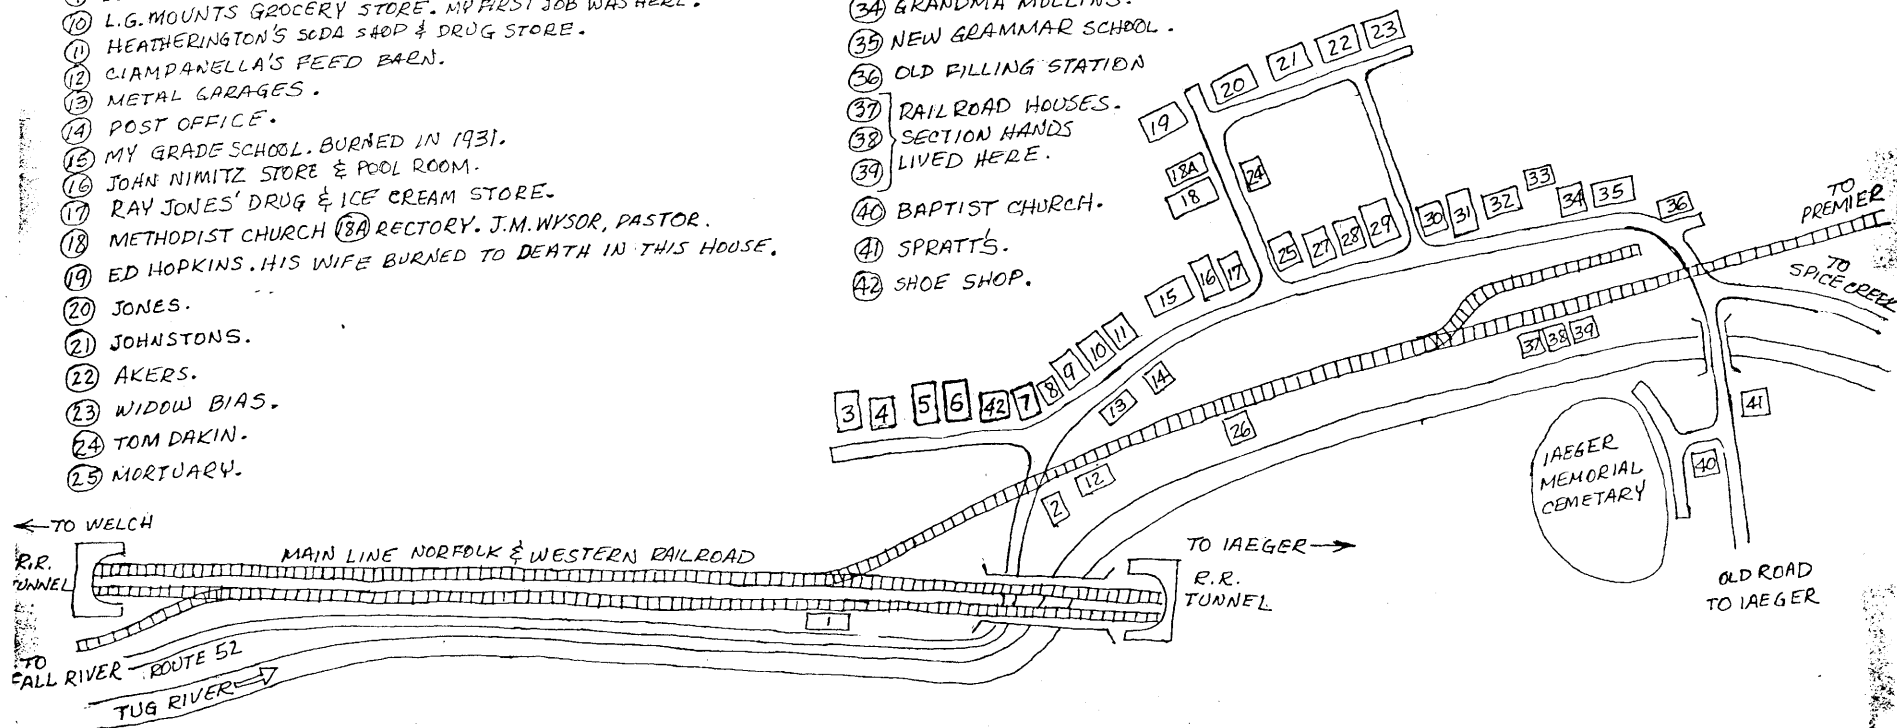 (10) L.G. MOUNTS GROCERY STORE. MY FIRST JOB WAS HERE.
(11) HEATHERINGTON'S SODA SHOP & DRUG STORE.
(12) CIAMPANELLA'S FEED BARN.
(13) METAL GARAGES.
(14) POST OFFICE.
(15) MY GRADE SCHOOL. BURNED IN 1931.
(16) JOHN NIMITZ STORE & POOL ROOM.
(17) RAY JONES' DRUG & ICE CREAM STORE.
(18) METHODIST CHURCH (18A) RECTORY. J.M. WYSOR, PASTOR.
(19) ED HOPKINS. HIS WIFE BURNED TO DEATH IN THIS HOUSE.
(20) JONES.
(21) JOHNSTONS.
(22) AKERS.
(23) WIDOW BIAS.
(24) TOM DAKIN.
(25) MORTUARY.
(34) GRANDMA MULLINS.
(35) NEW GRAMMAR SCHOOL.
(36) OLD FILLING STATION
(37) RAILROAD HOUSES.
(38) SECTION HANDS
(39) LIVED HERE.
(40) BAPTIST CHURCH.
(41) SPRATT'S.
(42) SHOE SHOP.
19
20
21
22
23
18A
18
24
25
27
28
29
30
31
32
33
34
35
36
TO
PREMIER
TO
SPICE CREEK
15
16
17
3
4
5
6
42
7
8
9
10
11
13
14
26
37
38
39
41
40
12
2
1
IAEGER
MEMORIAL
CEMETARY
OLD ROAD
TO IAEGER
← TO WELCH
R.R.
TUNNEL
MAIN LINE NORFOLK & WESTERN RAILROAD
TO IAEGER →
R.R.
TUNNEL
TO
ALL RIVER
ROUTE 52
TUG RIVER